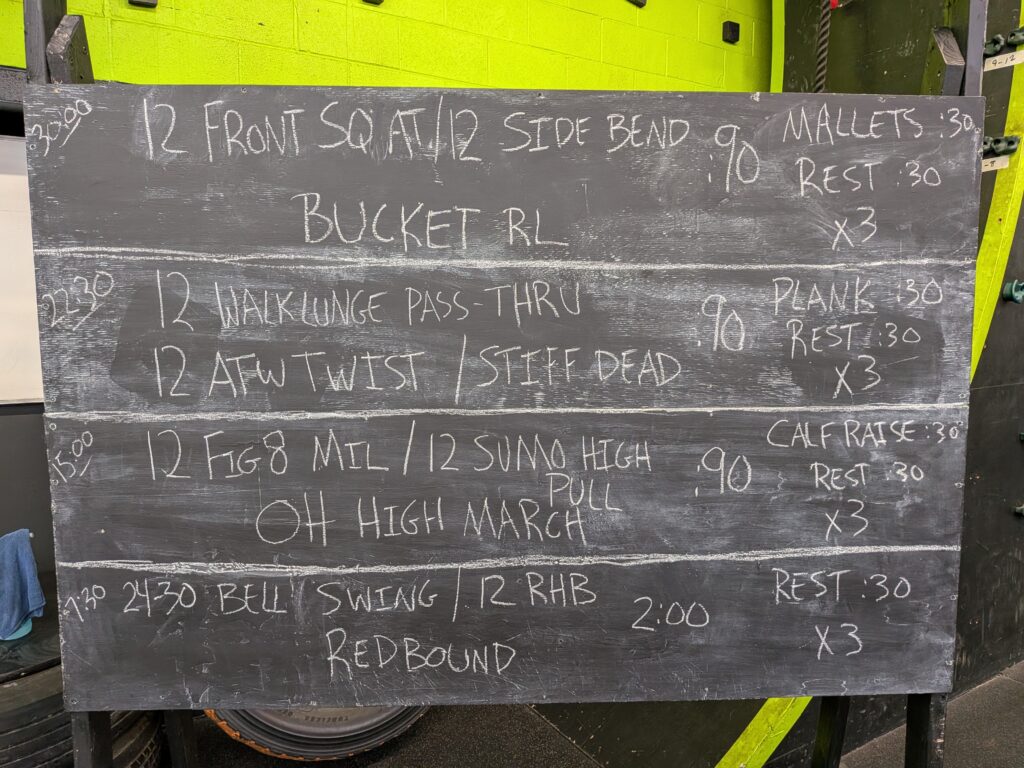 30:00 12 FRONT SQAT/12 SIDE BEND :90 MALLETS :30
REST :30
BUCKET RL X3
22:30 12 WALK LUNGE PASS-THRU :90 PLANK :30
REST :30
12 AFW TWIST / STIFF DEAD X3
15:00 12 FIG 8 MIL / 12 SUMO HIGH PULL :90 CALF RAISE :30
REST :30
OH HIGH MARCH X3
7:30 2430 BELL SWING / 12 RHB 2:00 REST :30
REDBOUND X3
9-12
TUBELESS